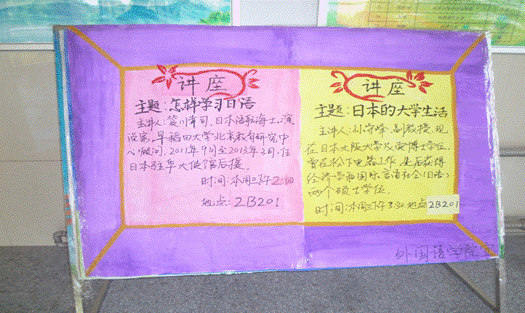 讲座
主题:怎样学习日语
主讲人:笈川幸司,日本语教海士,演
说家,早稻田大学北京教育研究中
心顾问,2011年9月至2013年2月,任
日本驻华大使馆后援。
时间:本周三下午2:00
地点:2B201
讲座
主题:日本的大学生活
主讲人:孙守峰,副教授,现
在日本大阪大学攻读博士学位,
曾在松下电器工作,先后获得
经济学和国际言语社会(日语)
两个硕士学位。
时间:本周三下午3:30 地点 2B201
外国语学院宣